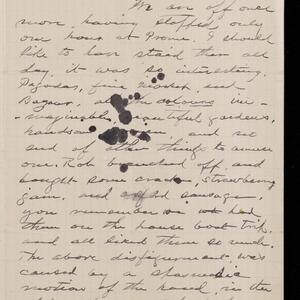 We are off once
more, having stopped only
one hour at Prome. I should
like to have staid there all
day, it was so interesting.
Pagodas, fine market and
Bazaar, all the colours im-
-maginable, beautiful gardens,
handsome, and
end of other things to amuse
one. Rob branched off, and
bought some crackers, strawberry
jam, and sausage,
you remember we had
them on the house boat trip,
and all liked them so much.
The above disfigurement was
caused by a spasmodic
motion of the hand, in the